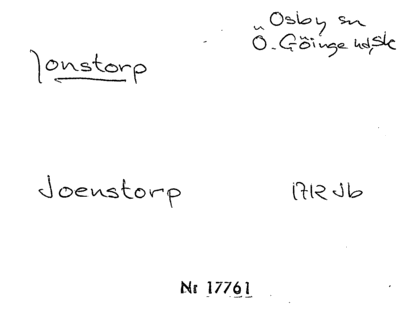 Osby sn
Ö. Göinge hd, Sk
Jonstorp
Joenstorp 1712 Jb
Nr 17761